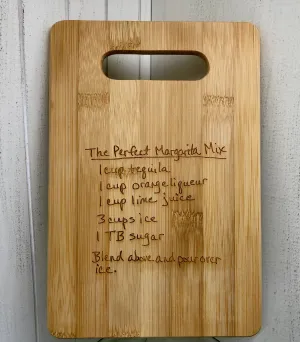 The Perfect Margarita Mix
1 cup tequila
1 cup orange liqueur
1 cup lime juice
3 cups ice
1 TB sugar
Blend above and pour over
ice.